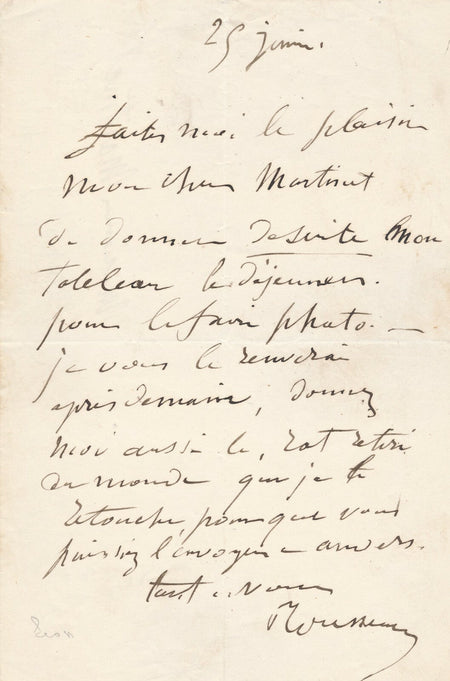 25 juin.
faites moi le plaisir
mon cher Martinet
de donner de suite mon
tableau le déjeuner.
pour le faire photo. —
je vous le renverrai
après demain, donnez
moi aussi le, rat retiré
du monde que je le
retouche, pour que vous
puissiez l'envoyer a anvers.
tout a vous
Rousseau